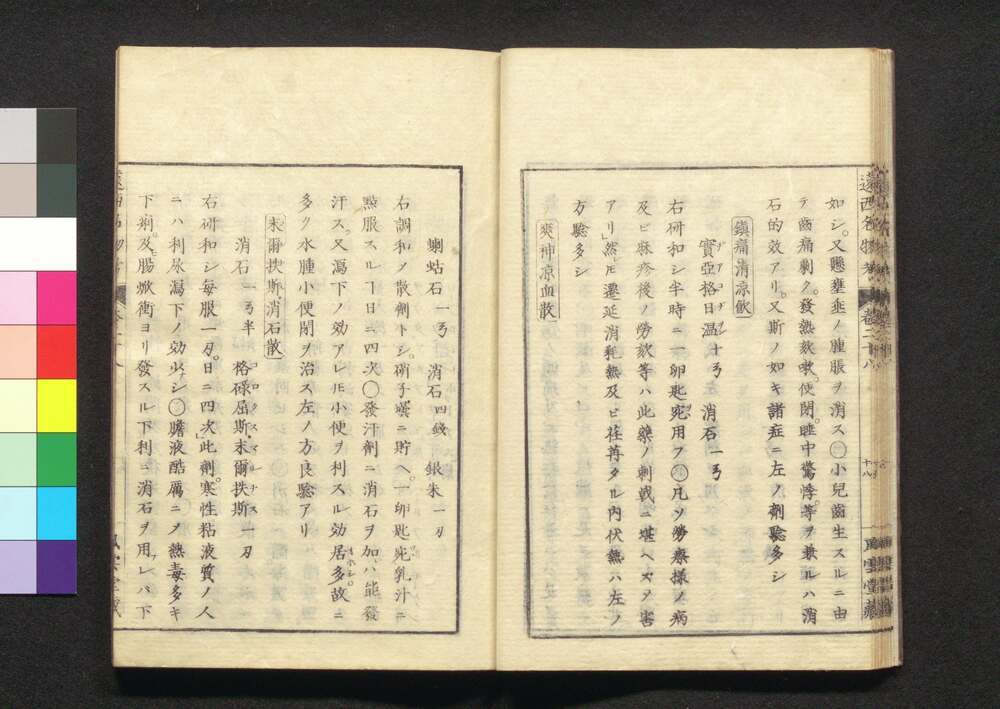 遠西名物考 卷二十八
十八
風雲堂藏
如シ。又懸壅垂ノ腫脹ヲ消ス〇小兒齒生スルニ由
テ齒痛劇ク。發熱欬嗽。便閉。睡中驚悸。等ヲ兼ルハ消
石的效アリ。又斯ノ如キ諸症ニ左ノ劑驗多シ
鎭痛清凉飲
實亞格日温十ヲ 消石一ヲ
右研和シ半時ニ一卵匙宛用フ〇凡ソ勞瘵様ノ病
及ビ麻疹後ノ勞欬等ハ此藥ノ刺戟ニ堪ヘズメ害
アリ」然𪜈遷延消耗熱及ビ荏苒タル内伏熱ハ左ノ
方驗多シ
爽神凉血散
蜊蛄石一ヲ 消石四錢 銀朱一刃
右調和メ散劑トシ。硝子壜ニ貯ヘ。一卵匙宛乳汁ニ
點服スルヿ日ニ四次〇發汗劑ニ消石ヲ加ハ能發
汗ス。又瀉下ノ效アレ𪜈小便ヲ利スル効居多。故ニ
多ク水腫小便閉ヲ治ス左ノ方良驗アリ
末爾扶斯消石散
消石一ヲ半 格碌屈斯末爾扶斯一刃
右研和シ毎服一刃。日ニ四次」此劑。寒性粘液質ノ人
ニハ利尿瀉下ノ効少シ〇膽液酷厲ニメ熱毒多キ
下痢。及。腸焮衝ヨリ發スル下利ニ消石ヲ用レバ下